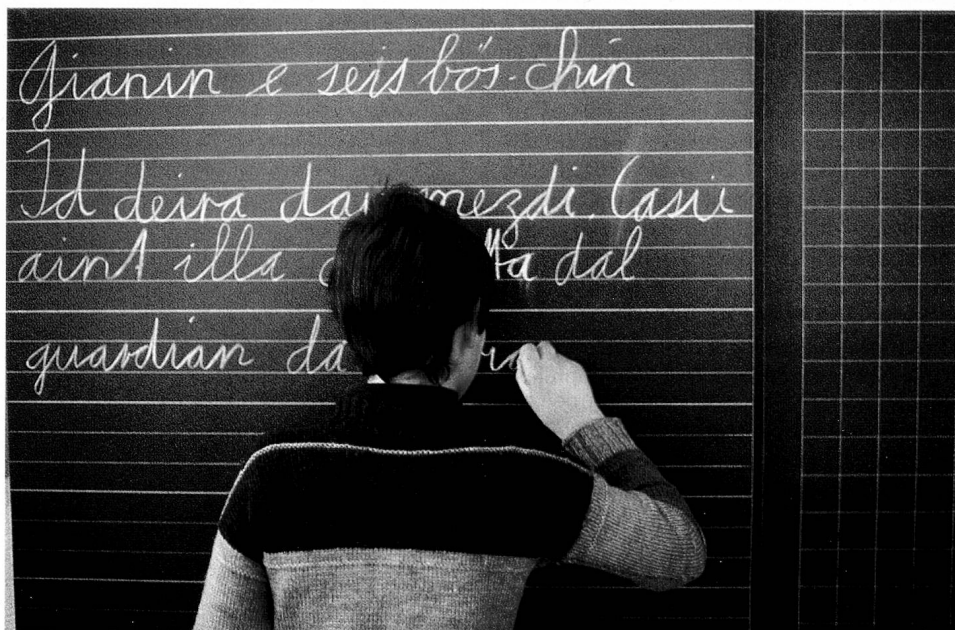 Gianin e seis bös-chin
Id deira davo mezdi. Casü
aint illa dal
guardian da